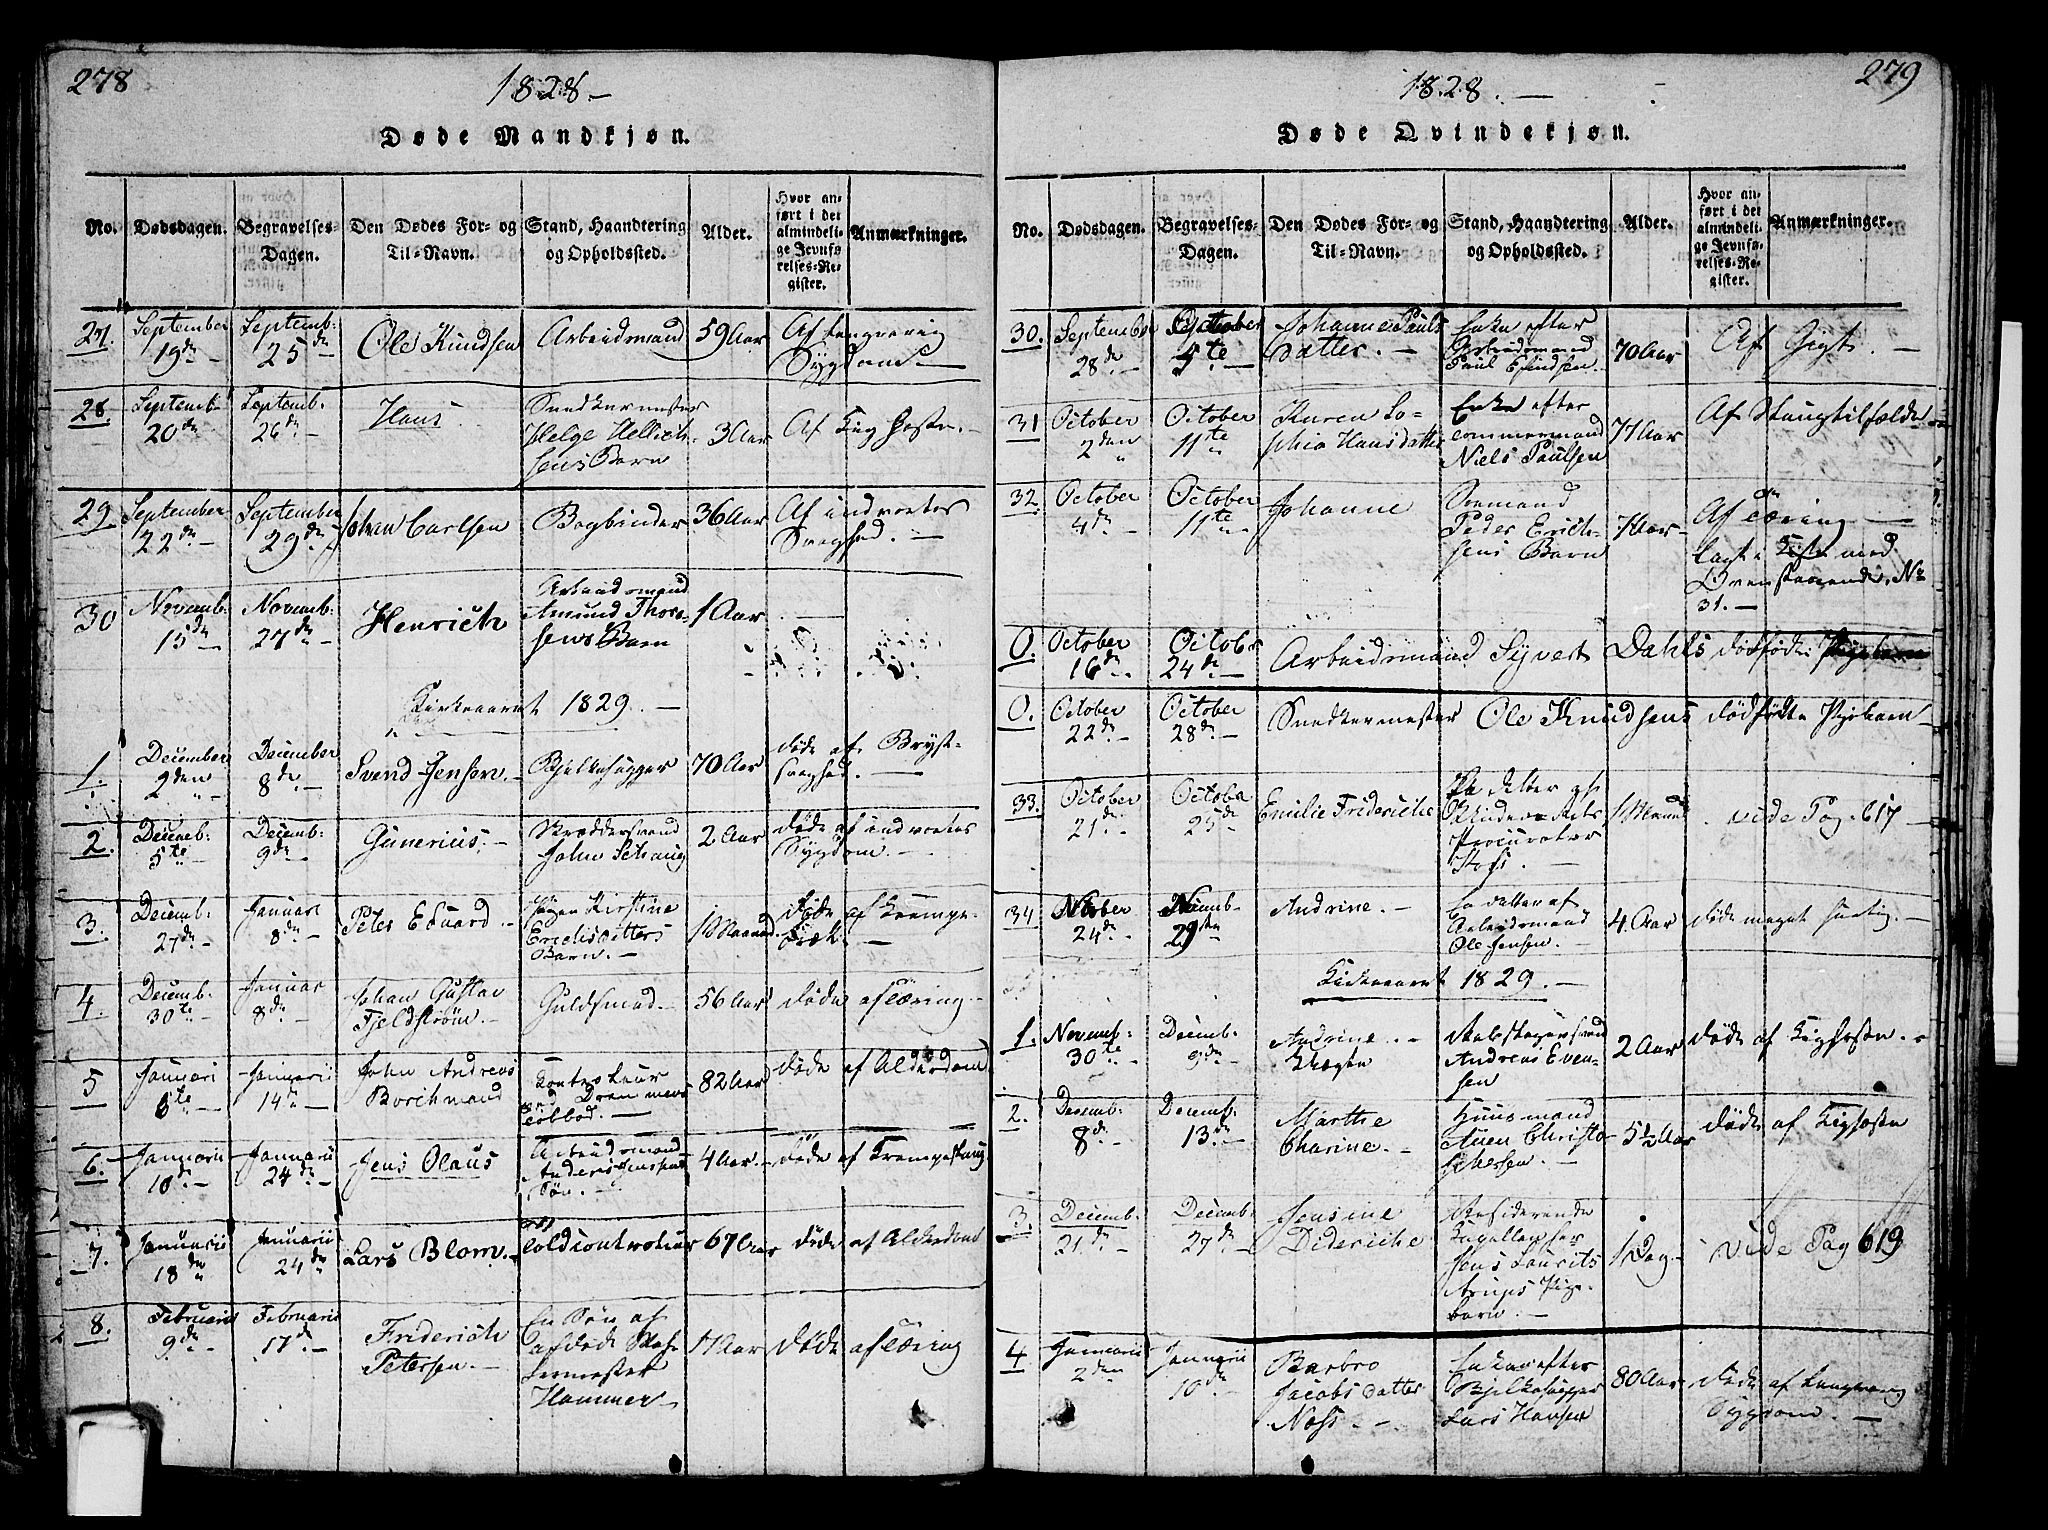 278
1828. —
Døde Mandkjøn.
No. Dødsdagen. Begravelses-Dagen. Den Dødes For- og Til-Navn. Stand, Haandtering og Opholdssted. Alder. Hvor anført i det almindelige Jevnførelses-Register. Anmærkninger.
27. September 19de — Septemb: 25de Ole Knudsen Arbeidsmand 59 Aar Af langvarig Sygdom. —
28. Septemb. 20de Septemb. 26de — Hans Snedkermester Helge Barn 3 Aar Af Kighoste. —
29 September 22de — September 29de Johan Carlsen Bogbinder 36 Aar Af indvortes Svaghed. —
30 Novemb: 15de — Novemb: 27de — Henrich Arbeidsmand Amund Barn 1 Aar —
Kirkeaaret 1829. —
1. December 2den December 8de — Svend Jensen. — Bjelkehugger 70 Aar døde af Bryst-svaghed. —
2. Decemb: 5te — Decemb: 9de — Gunerius. — Skræddersvend John Schaug 2 Aar døde af indvortes Sygdom. —
3. Decemb: 27de — Januari 8de — Peter Eduard — Pigen Kirstine Barn. — 1 Maaned. døde af Krampe-
4. Decemb: 30te — Januar 8de — Johan Gustav Fjeldstrøm. — Guldsmed — 56 Aar døde af Tæring —
5 Januari 6te — Januarii 14de — John Andreas Borchmand Contoleur ved Drammens Toldbod. — 82 Aar døde af Alderdom
6. Januarii 10de — Januarii 24de — Jens Olaus Arbeidsmand Anders Jensens Søn. — 4 Aar. — døde af Krampeslaug
7. Januarii 18de Januarii 24de Lars Blom. — Toldcontroleur 67 Aar døde af Alderdom
8. Februarii 9de — Februarii 17de — Friderich Petersen. — En Søn af afdøde Hammer — 17 Aar døde af Tæring
279
1828. —
Døde Qvindekjøn.
No. Dødsdagen. Begravelses-Dagen. Den Dødes For- og Til-Navn. Stand, Haandtering og Opholdssted. Alder. Hvor anført i det almindelige Jevnførelses-Register. Anmærkninger.
30. September 28de — October 5te — Johanne Pauls Datter. — Enke efter Arbeidsmand Paul 70 Aar Af Gigt. —
31 October 2den October 11te Karen Sophia Hansdatter Enke efter Niels Paulsen 77 Aar Af Slagtilfælde
32. October 4de — October 11te — Johanne Sømand Peder Erichsens Barn 7 Aar — Af Tæring — lagt i Kiste med Ovenstaaende. No 31. —
0. October 16de October 24de — Arbeidsmand Syvert Dahls dødfødte
0. October 22de — October 28de — Snedkermester Ole Knudsens dødfødte Pigebarn —
33. October 21de — October 25de Emilie Friderike Procurator 1 Maaned. vide Pag. 617 —
34 24de — 29de Andrine. — En datter af Arbeidsmand Ole Jensen. — 4. Aar døde meget hastig. —
Kirkeaaret 1829. —
1. Novemb: 30te — Decemb. 9de — Andrine Andreas Evensen 2 Aar døde af Kighosten. —
2. Decemb: 8de — Decemb: 13de — Marthe Charine. — Huusmand Christophersen. — 5½ Aar døde af Kighosten
3. Decemb. 21de — Decemb. 27de — Jensine Diderikke Residerende Capellan Hr Jens Laurits Arups Pigebarn. — 1 Dag — vide Pag 619
4 Januarii 2den Januarii 10de — Barbro Jacobs datter Noss. — Enken efter Bjelkehugger Lars Hansen 80 Aar døde af langvarig Sygdom. —